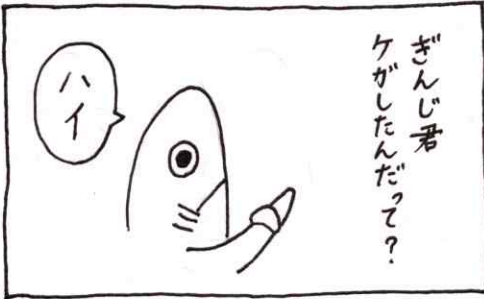 ぎんじ君
ケガしたんだって？
ハイ